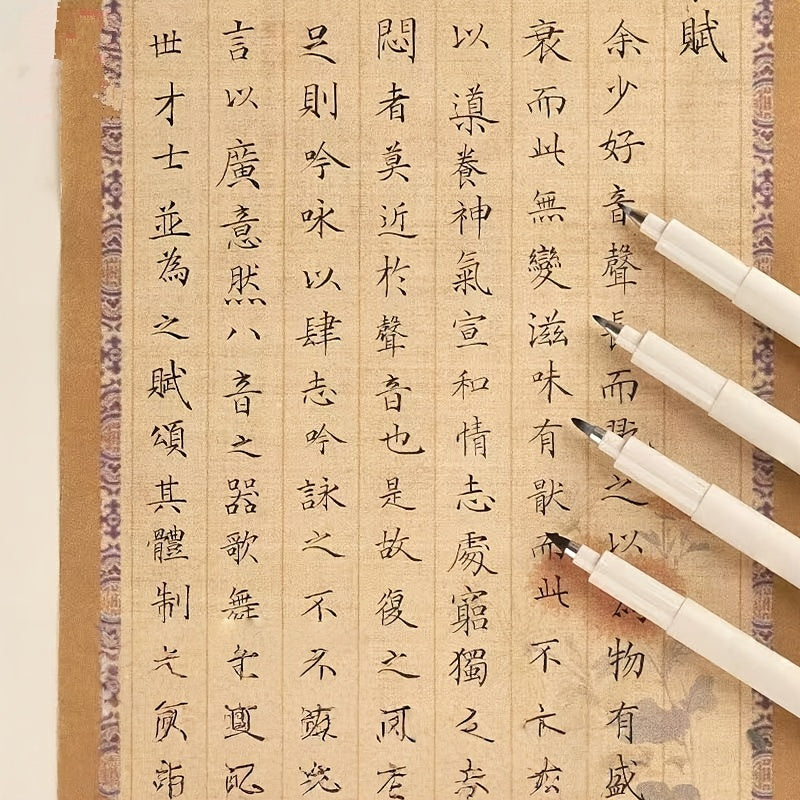 賦
余少好音聲長而之以物有盛
衰而此無變滋味有猒而此不
以導養神氣宣和情志處窮獨
悶者莫近於聲音也是故復之
足則吟咏以肆志吟詠之不
言以廣意然八音之器歌舞
世才士並為之賦頌其體制